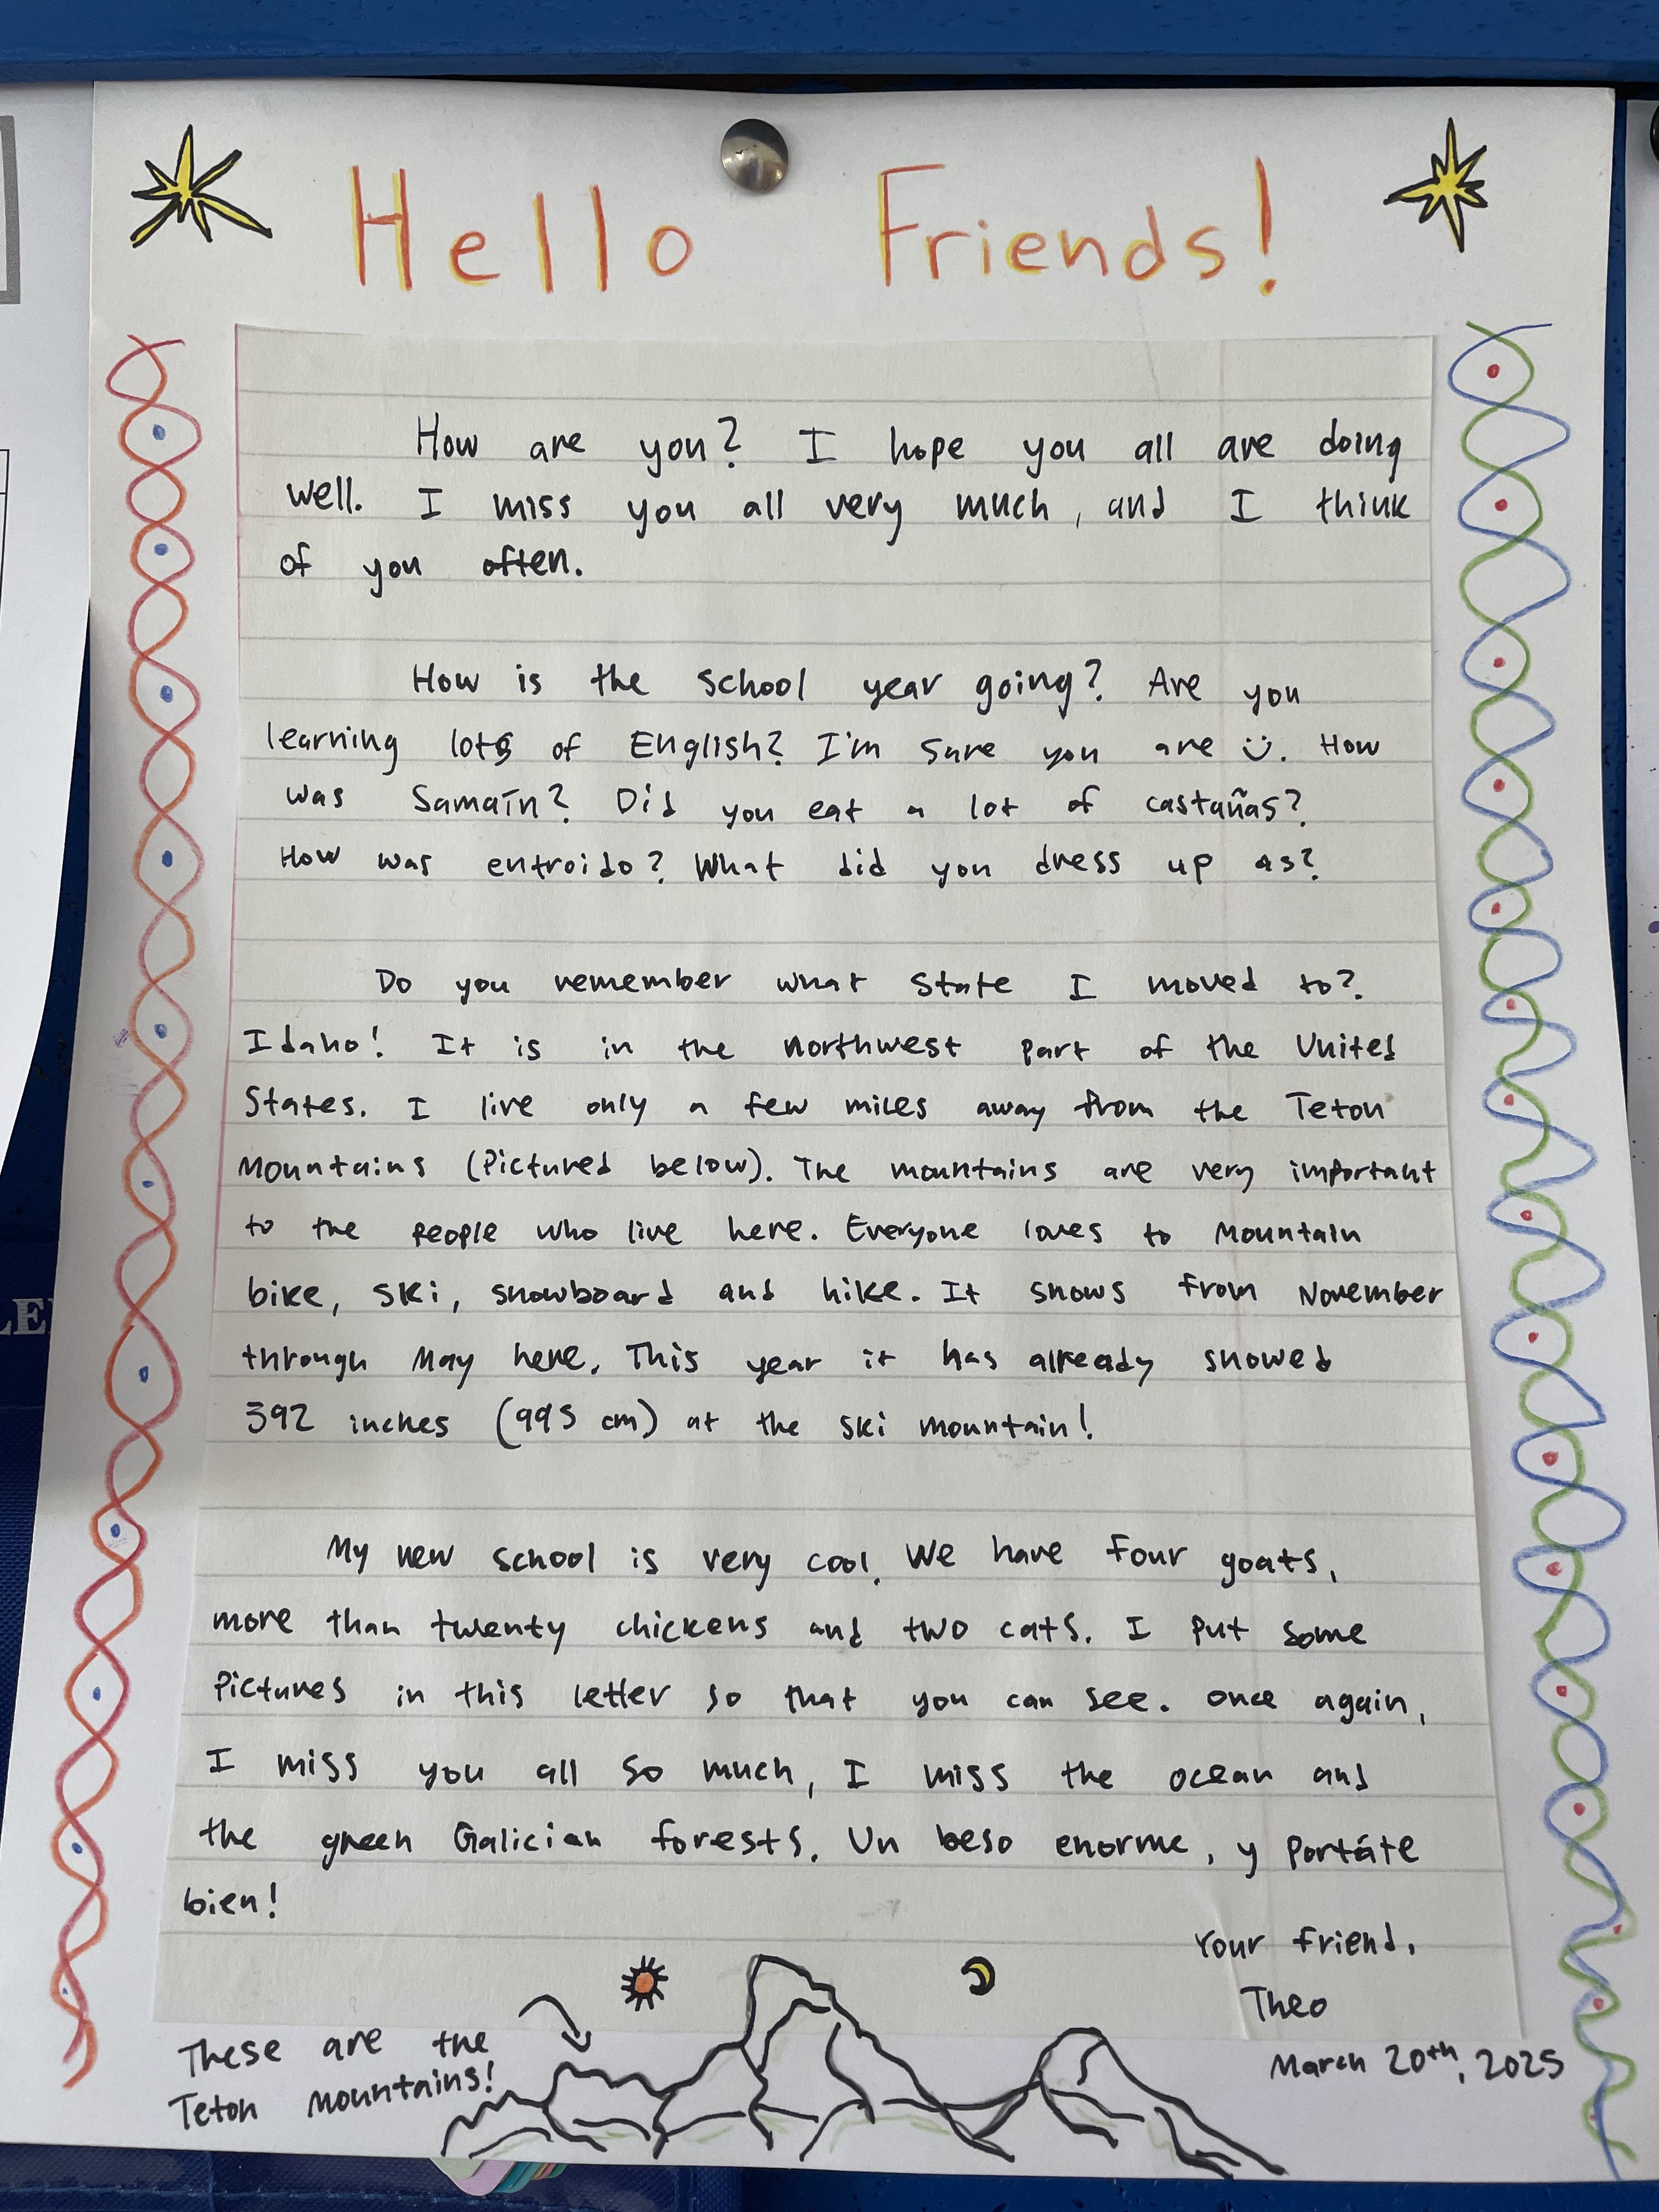 Hello Friends!
How are you? I hope you all are doing
well. I miss you all very much, and I think
of you often.
How is the school year going? Are you
learning lots of English? I'm sure you are ☺. How
was Samaín? Did you eat a lot of castañas?
How was entroido? What did you dress up as?
Do you remember what state I moved to?.
Idaho! It is in the northwest part of the United
States. I live only a few miles away from the Teton
Mountains (pictured below). The mountains are very important
to the people who live here. Everyone loves to mountain
bike, ski, snowboard and hike. It snows from November
through May here. This year it has already snowed
392 inches (995 cm) at the ski mountain!
My new school is very cool. We have four goats,
more than twenty chickens and two cats. I put some
pictures in this letter so that you can see. Once again,
I miss you all so much, I miss the ocean and
the green Galician forests. Un beso enorme, y portáte
bien!
Your friend,
Theo
March 20th, 2025
These are the
Teton mountains!
LE